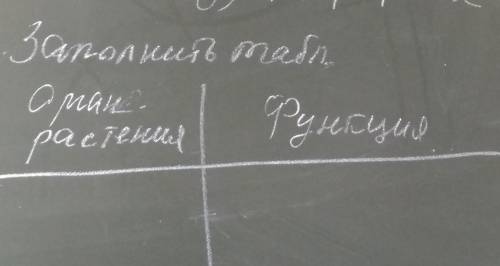 Заполнить табл.
Орган
растения
Функция